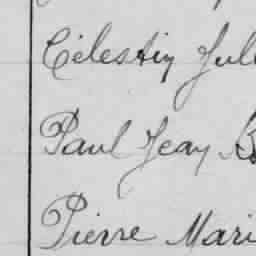 Célestin Jul
Paul Jean B
Pierre Mari